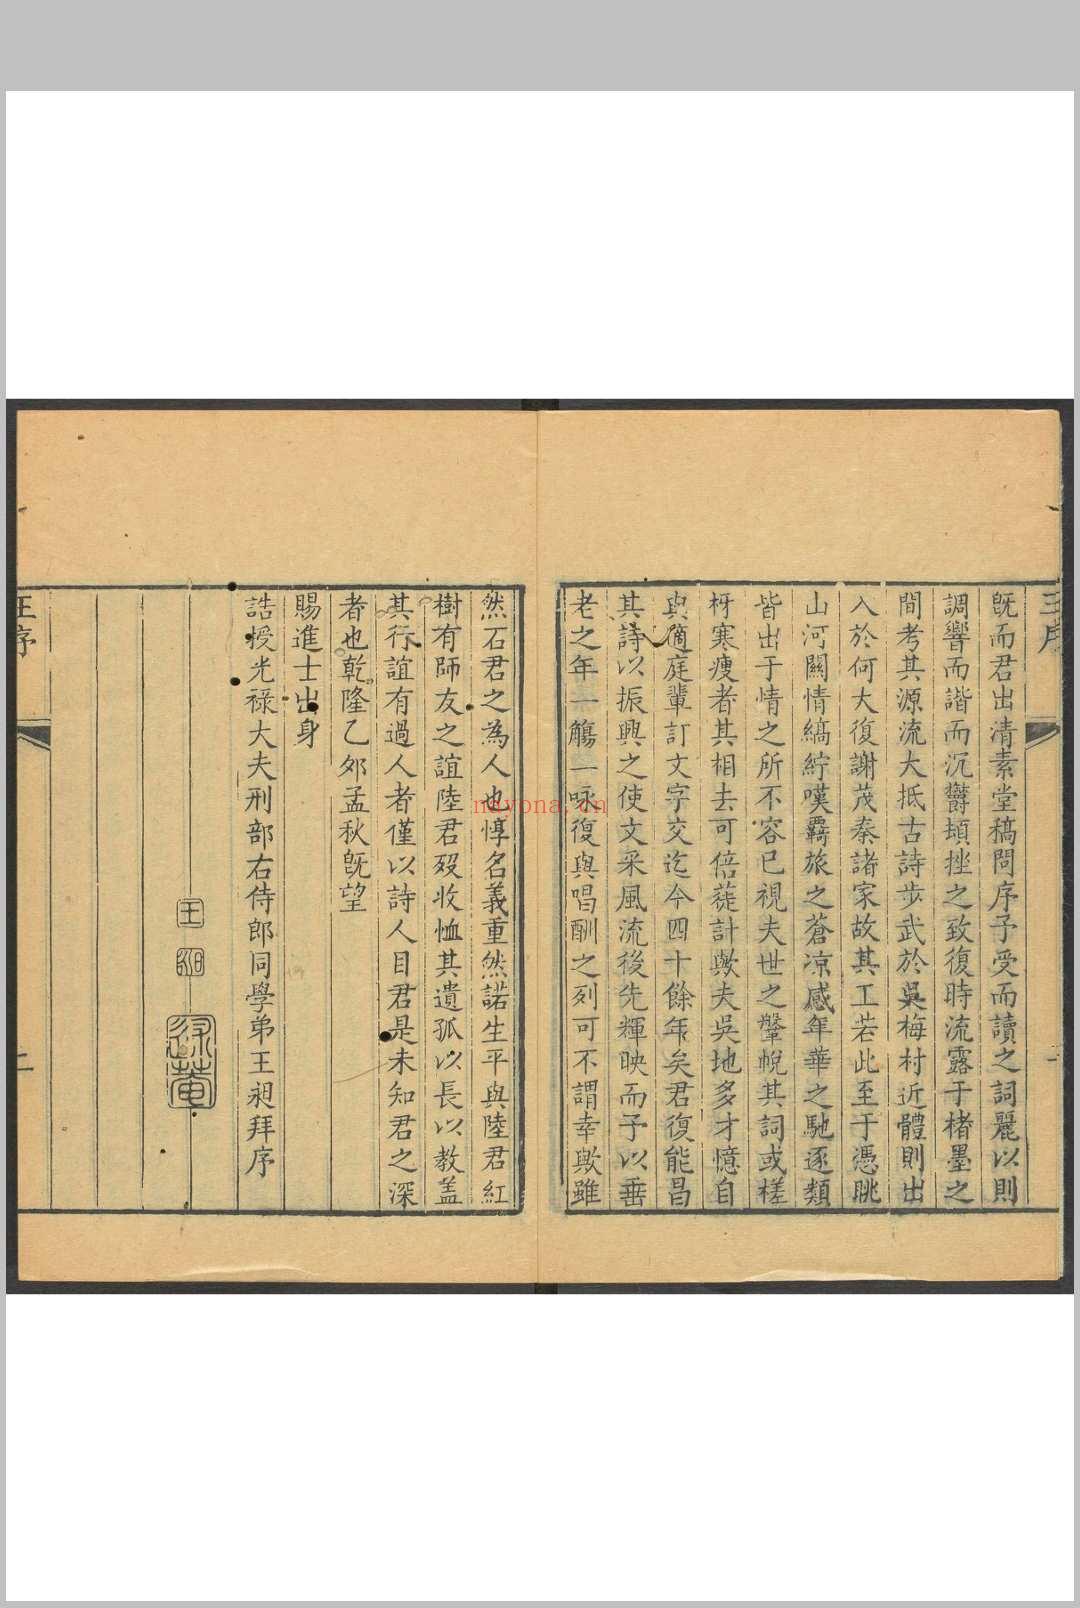 王序
既而君出清素堂稿問序予受而讀之詞麗以則
調響而諧而沉欝頓挫之致復時流露于楮墨之
間考其源流大抵古詩步武於吳梅村近體則出
入於何大復謝茂秦諸家故其工若此至于憑眺
山河關情縞紵嘆羇旅之蒼凉感年華之馳逐類
皆出于情之所不容已視夫世之鞶帨其詞或槎
枒寒瘦者其相去可倍蓰計歟夫吳地多才憶自
與適庭輩訂文字交迄今四十餘年矣君復能昌
其詩以振興之使文采風流後先輝映而予以垂
老之年一觴一咏復與唱酬之列可不謂幸歟雖
然石君之為人也惇名義重然諾生平與陸君紅
樹有師友之誼陸君歿收恤其遺孤以長以教蓋
其行誼有過人者僅以詩人目君是未知君之深
者也乾隆乙夘孟秋既望
賜進士出身
誥授光祿大夫刑部右侍郎同學弟王昶拜序
王昶
述菴
王序
二
nayona.cn